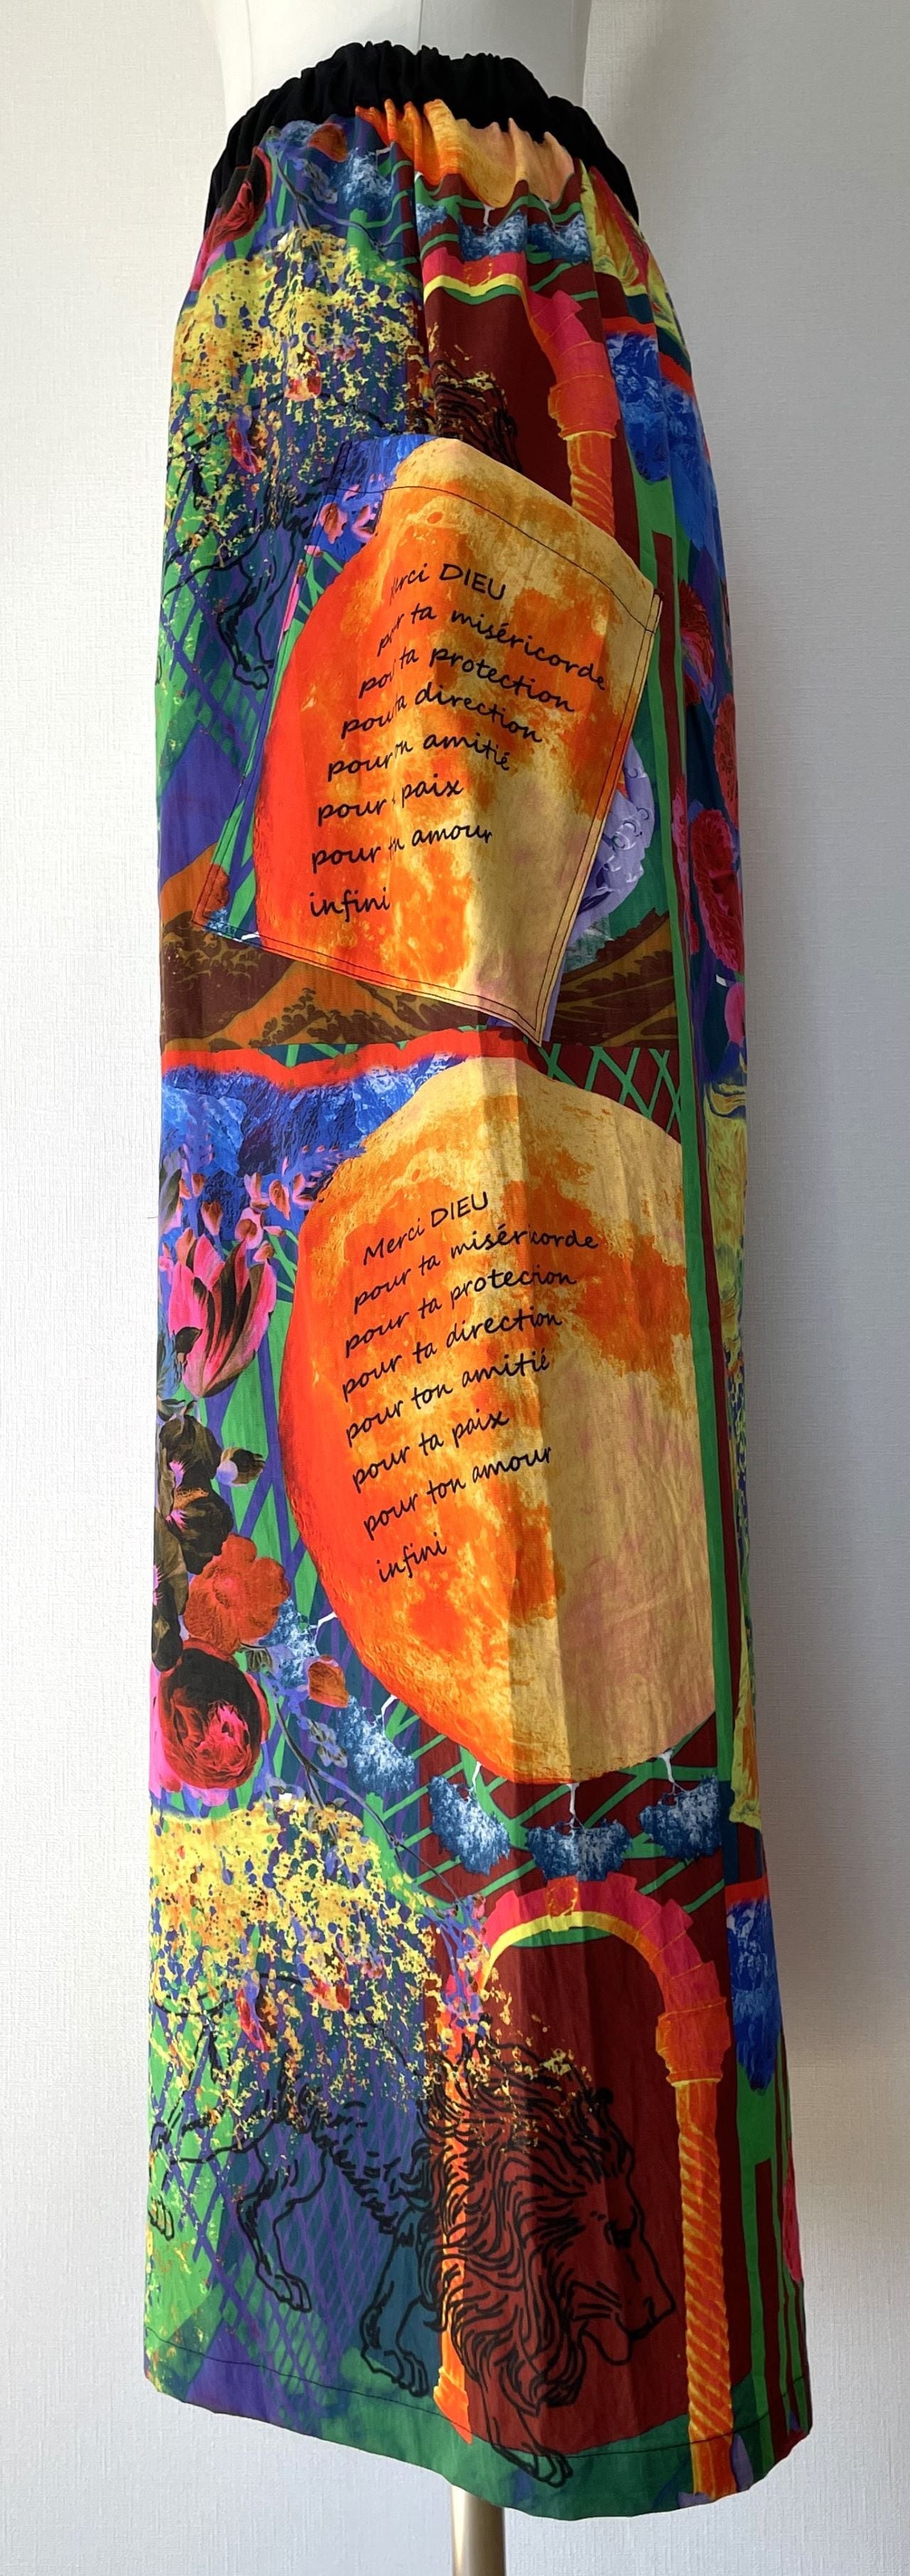 Merci DIEU
pour ta miséricorde
pour ta protection
pour ta direction
pour ton amitié
pour paix
pour amour
infini
Merci DIEU
pour ta miséricorde
pour ta protection
pour ta direction
pour ton amitié
pour ta paix
pour ton amour
infini